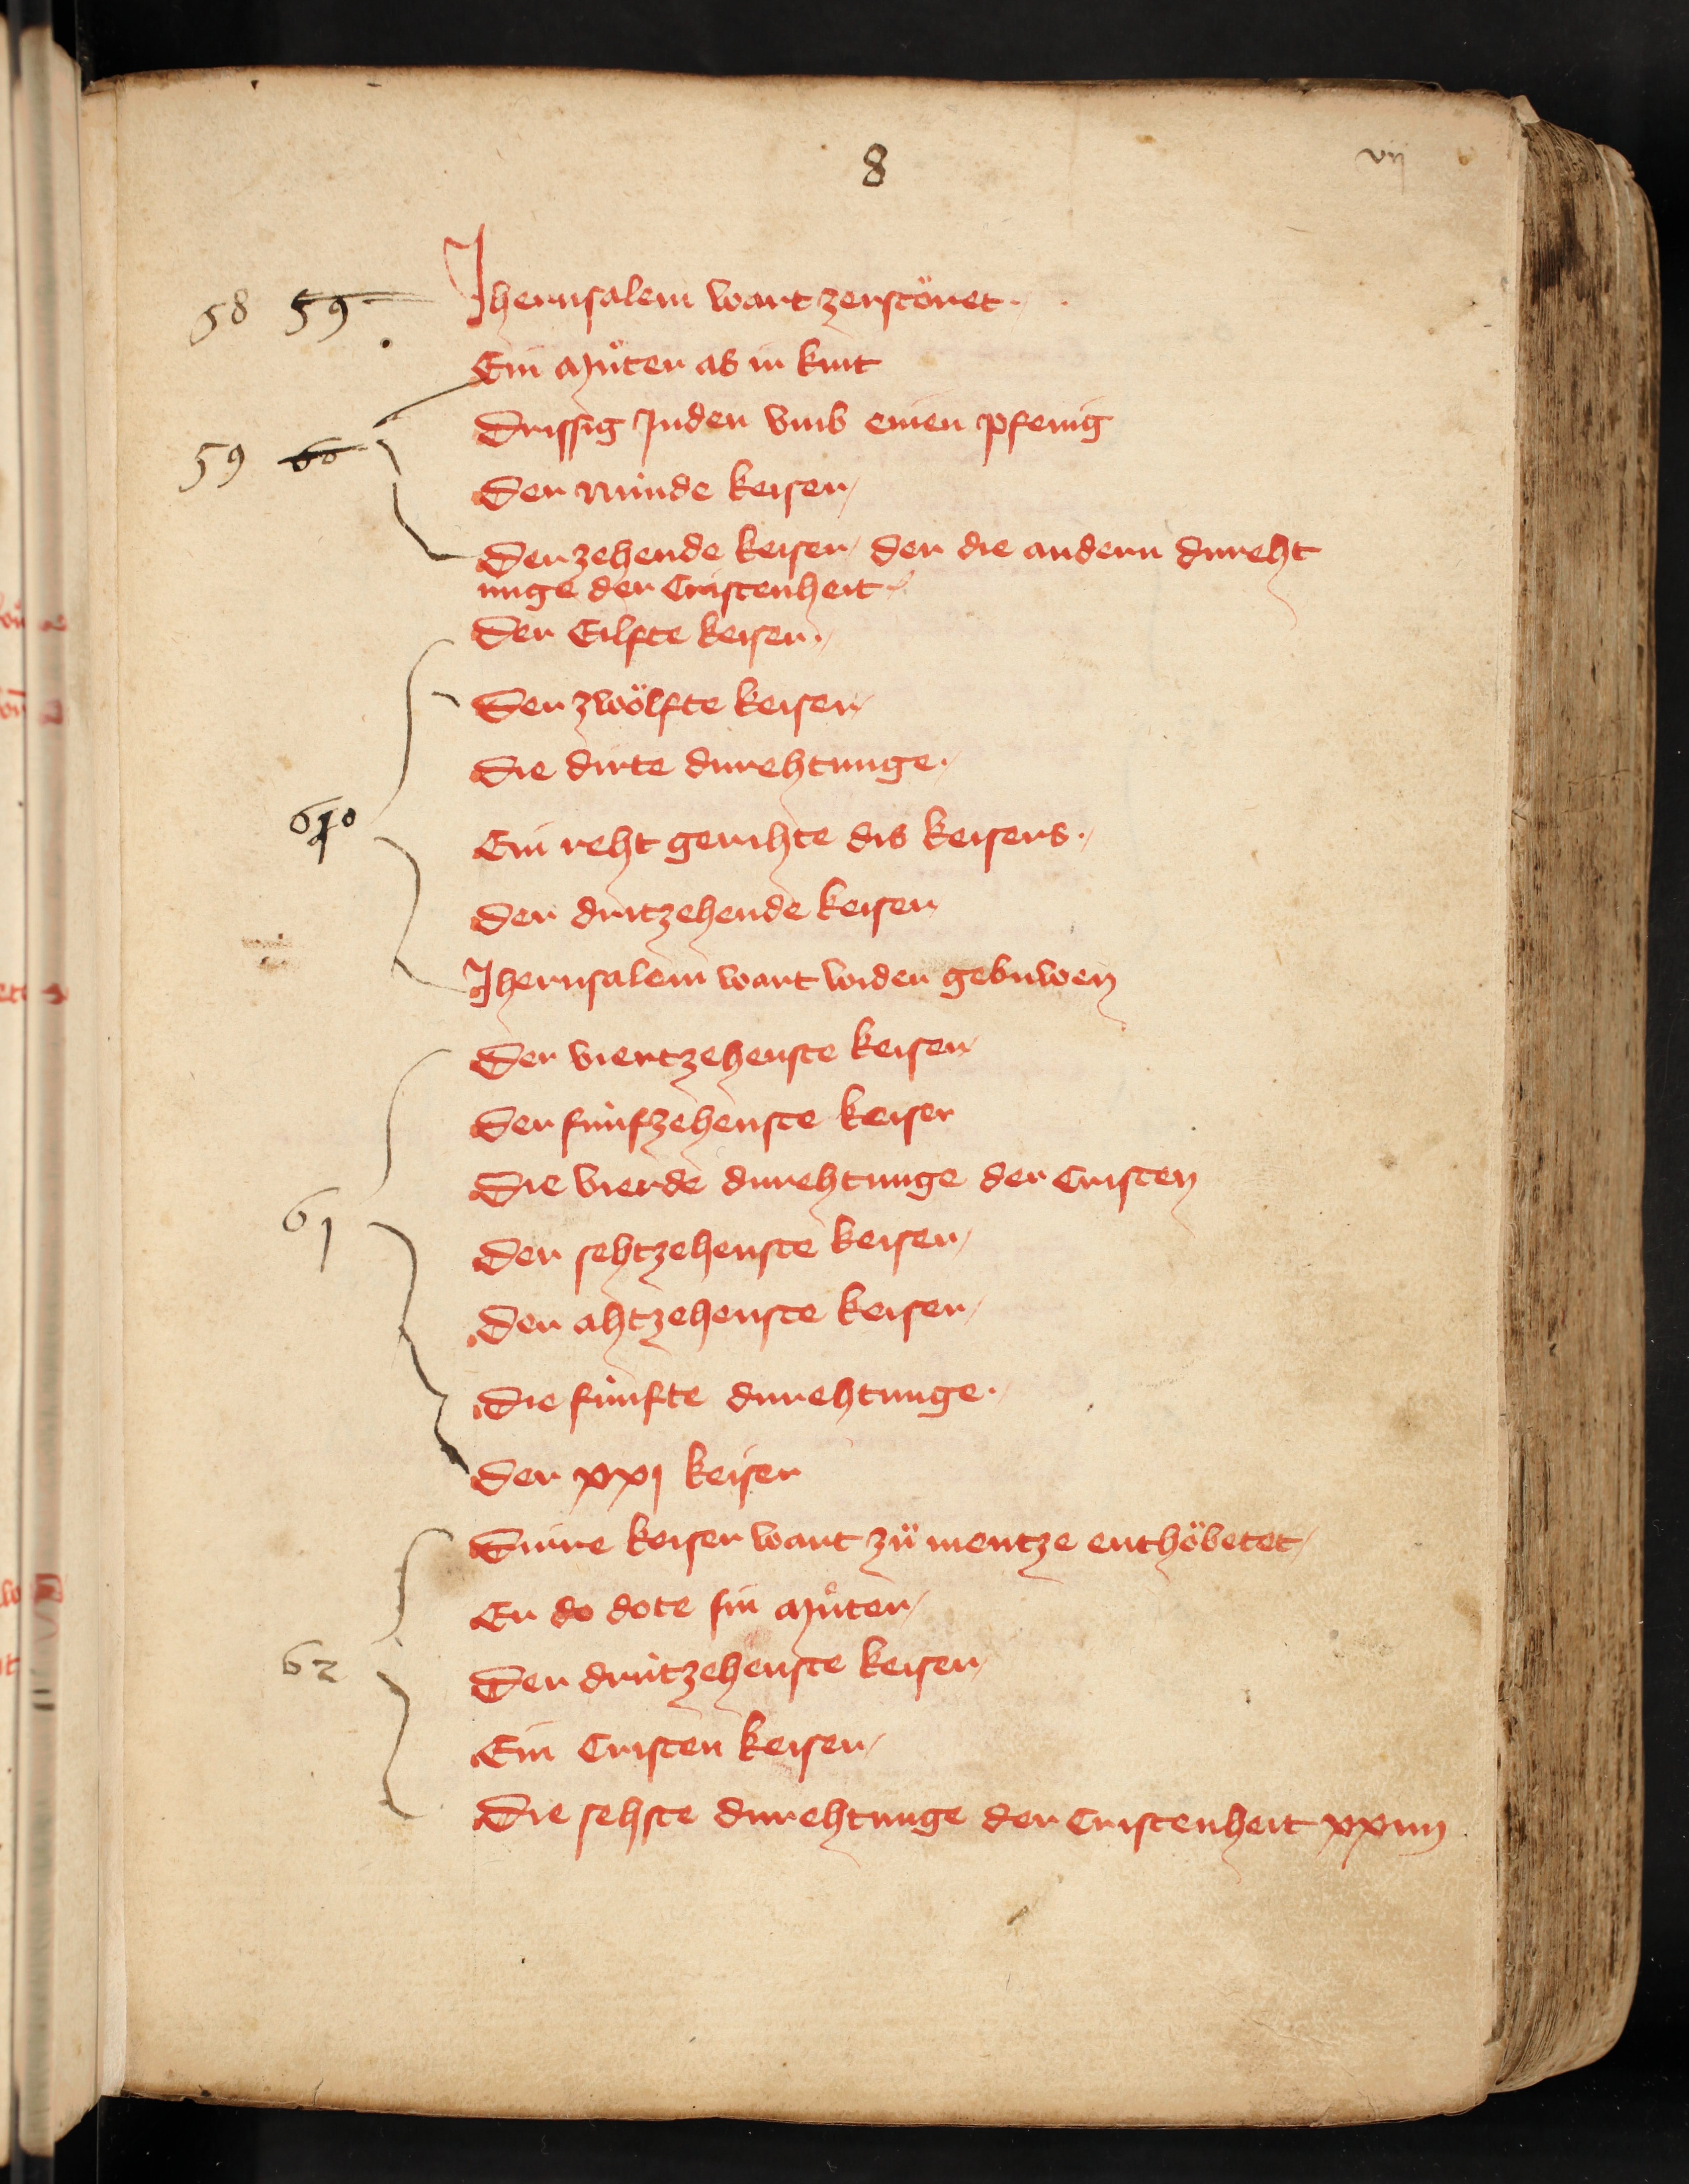 8
vij
58 59 Jherusalem wart zerstöret.
Ein můter as ir kint
Drissig Juden vmb einen pfenig
59 60 Der núnde keiser
Der zehende keiser der die andern dureht
unge der Cristenheit
Der Eilfte keiser.
Der zwölfte keiser
Die dirte durehtunge.
60 Ein reht gerihte dis keisers.
Der dritzehende keiser
Jherusalem wart wider gebuwen
Der viertzehenste keiser
Der fúnfzehenste keiser
Die vierde durehtunge der Cristen
61 Der sehtzehenste keiser
Der ahtzehenste keiser
Die fúnfte durehtunge.
Der xxj keiser
Dirre keiser wart zů mentze enthöbetet
Er do dote sin můter
62 Der drútzehenste keiser
Ein Cristen keiser
Die sehste durehtunge der Cristenheit xxiiij